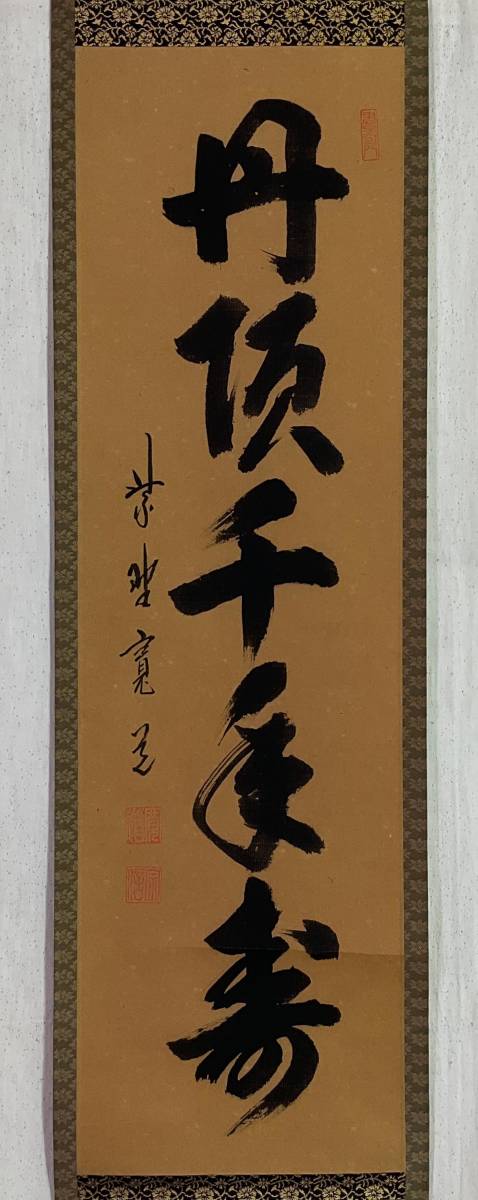 丹頂千年壽
紫野寛道